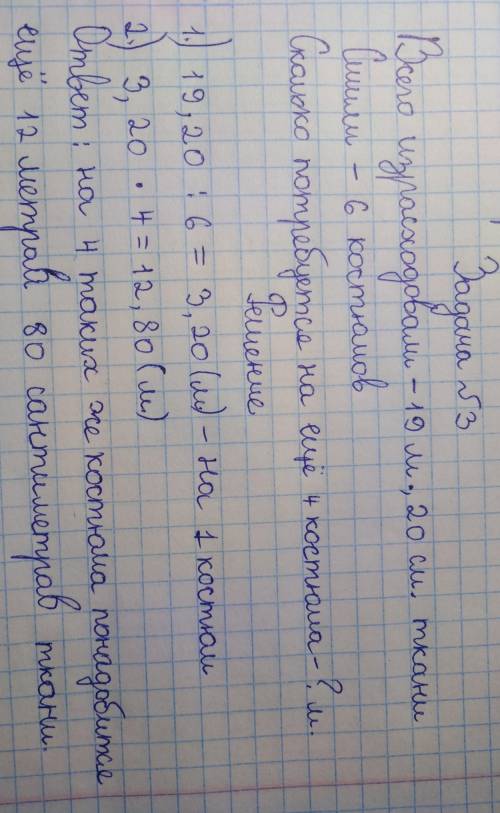 Задача №3
Всего израсходовали - 19 м., 20 см. ткани
Сшили - 6 костюмов
Сколько потребуется на ещё 4 костюма - ? м.
Решение
1.) 19,20 : 6 = 3,20 (м) - на 1 костюм
2.) 3,20 · 4 = 12,80 (м)
Ответ: на 4 таких же костюма понадобится
ещё 12 метрав 80 сантиметрав ткани.